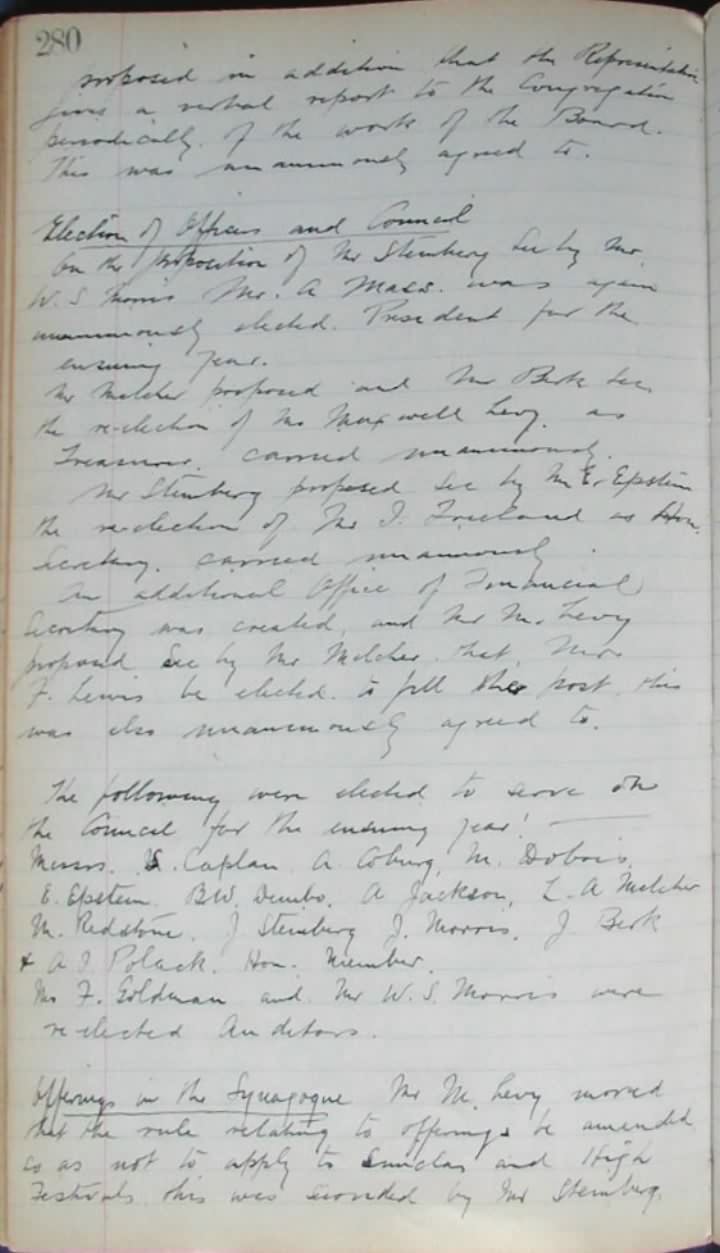 280
proposed in addition that the Representative
gives a verbal report to the Congregation
periodically of the work of the Board.
This was unanimously agreed to.
Election of Officers and Council
On the proposition of Mr Steinberg Sec by Mr.
W. S Morris Mr. A Mass. was again
unanimously elected. President for the
ensuing year.
Mr Melcher proposed and Mr Berk Sec.
the re-election of Mr Maxwell Levy. as
Treasurer. carried unanimously.
Mr Steinberg proposed Sec by Mr E. Epstein
the re-election of Mr I. Freeland as Hon.
Secretary. carried unanimously.
An additional Office of Financial
Secretary was created, and Mr M. Levy
proposed Sec by Mr Melcher that
F. Lewis be elected. to fill the post this
was also unanimously agreed to.
The following were elected to serve on
the Council for the ensuing year: —
Messrs. S. Caplan A. Coburg, M. Dobois,
E. Epstein. B.W. Dembo. A Jackson, L. A Melcher
M. Redstone. J Steinberg J. Morris. J Berk
& A I Polack. Hon. Member.
Mr F. Goldman and Mr W. S. Morris were
re-elected Auditors.
Offerings in the Synagogue Mr M. Levy moved
that the rule relating to offerings be amended
so as not to apply to and High
Festivals this was seconded by Mr Steinberg.